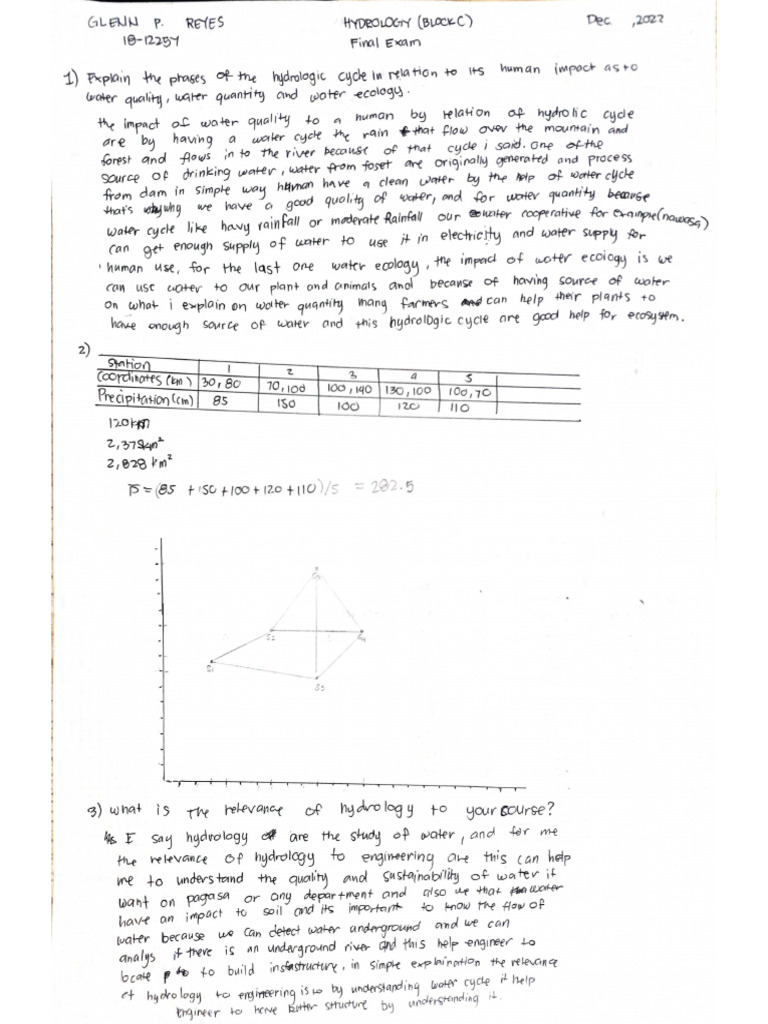 GLENN P. REYES HYDROLOGY (BLOCK C) Dec , 2022
18-12254 Final Exam
1) Explain the phases of the hydrologic cycle in relation to its human impact as to
water quality, water quantity and water ecology.
the impact of water quality to a human by relation of hydrolic cycle
are by having a water cycle the rain that flow over the mountain and
forest and flows in to the river because of that cycle i said. One of the
source of drinking water, water from foset are originally generated and process
from dam in simple way human have a clean water by the help of water cycle
that's why we have a good quality of water, and for water quantity because
water cycle like havy rainfall or moderate Rainfall our water cooperative for example(nawasa)
can get enough supply of water to use it in electricity and water supply for
human use, for the last one water ecology, the impact of water ecology is we
can use water to our plant and animals and because of having source of water
on what i explain on water quantity many farmers can help their plants to
have enough source of water and this hydrologic cycle are good help for ecosystem.
2)
Station 1 2 3 4 5
Coordinates (km) 30, 80 70, 100 100, 140 130, 100 100, 70
Precipitation (cm) 85 150 100 120 110
120km
2,375km²
2,828 km²
P = (85 + 150 + 100 + 120 + 110)/5 = 282.5
S3
S2 S4
S1
S5
3) what is The relevance of hydrology to your course?
I say hydrology are the study of water, and for me
the relevance of hydrology to engineering are this can help
me to understand the quality and sustainability of water if
want on pagasa or any department and also that water
have an impact to soil and its important to know the flow of
water because we can detect water underground and we can
analys if there is an underground river and this help engineer to
locate to build insfastructure, in simple explaination the relevance
of hydrology to engineering is by understanding water cycle it help
engineer to have better structure by understanding it.